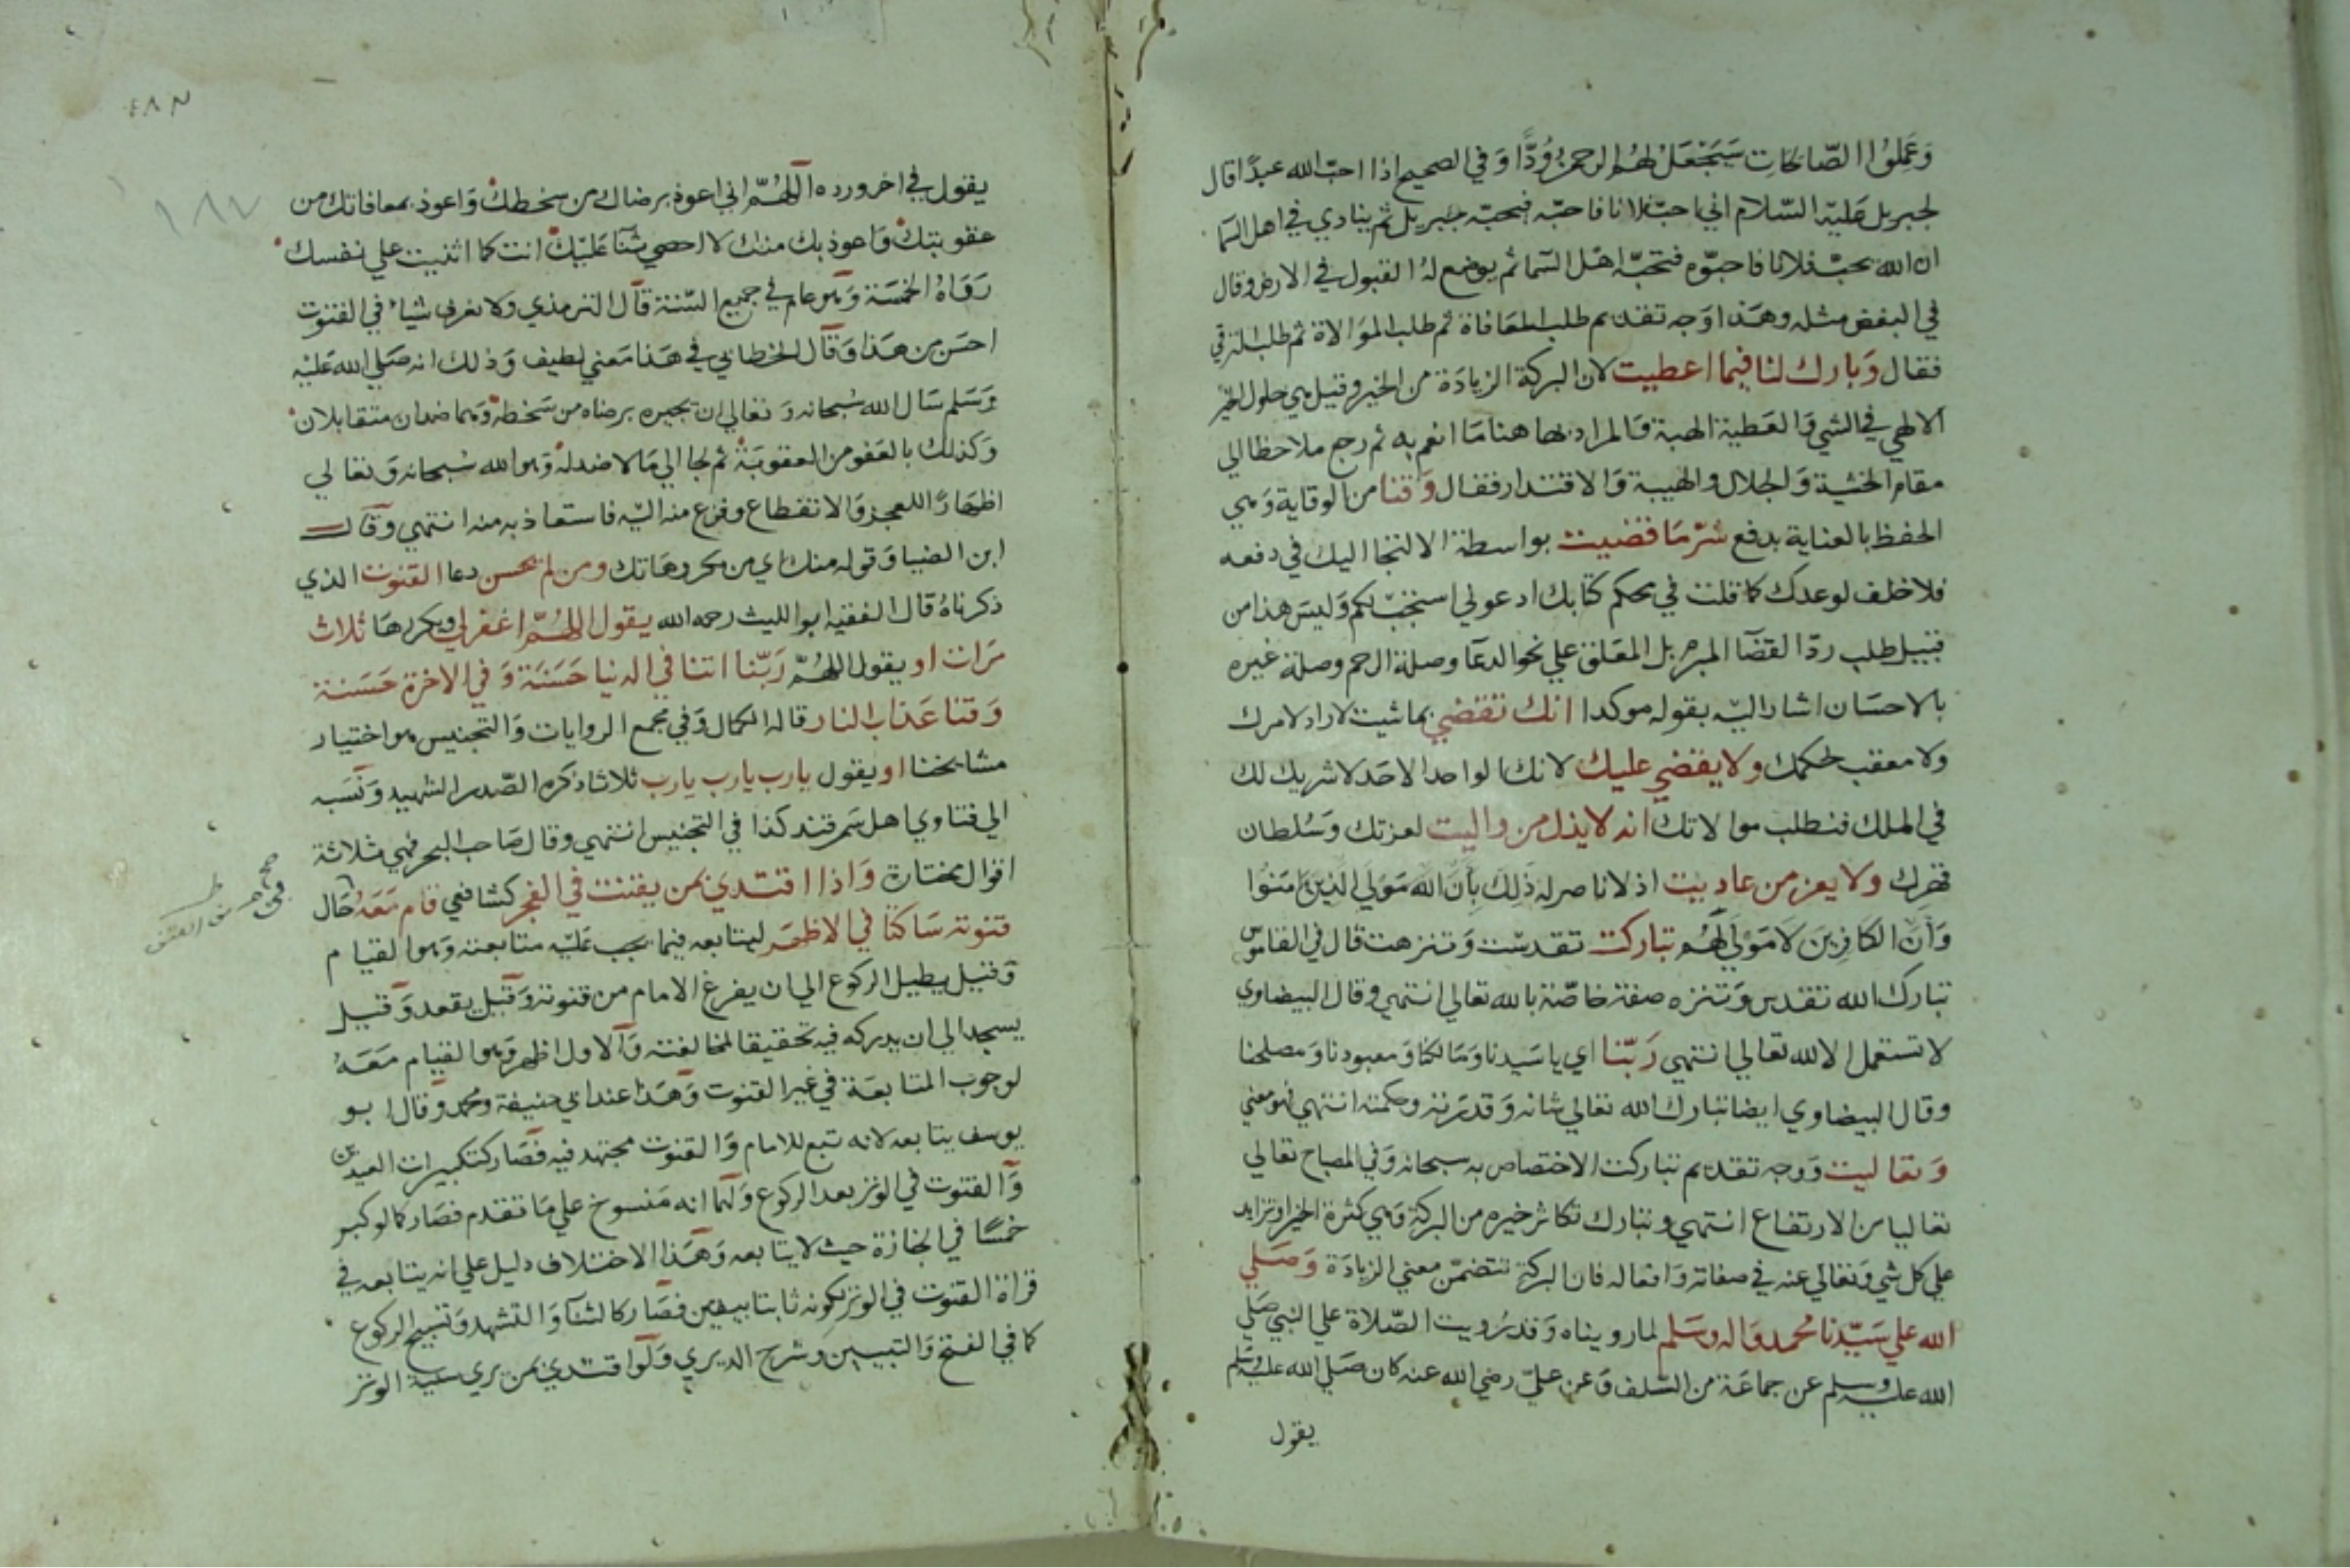 وَعَمِلُوا الصّالحَات سَيَجْعَلُ لهُمُ الرحمن وُدًّا وَفي الصحيح اذا احبّ الله عبدًا قال
لجبريل عَليْه السّلام اني احبّ فلانا فاحبّه فيحبّه جبريل ثم ينادي في اهل السّما
ان الله يحبّ فلانا فاحبّوه فتحبّه اهْل السّما ثم يوضع لهُ القبول في الارض وقال
في البغض مثله وهَذا وَجه تقديم طلب المعَافاة ثم طلب الموَالاة ثم طلب الترقي
فقال وَبارك لنا فيما اعطيت لان البركة الزيادَة من الخير وقيل هي حلول الخير
الالهي في الشي وَالعَطية الهبة وَالمراد بها هنا مَا انعم به ثم رجع ملاحظا الي
مقام الخشية وَالجلال والهيبة وَالاقتدار فقال وَقنا من الوقاية وَهي
الحفظ بالعناية بدفع شرّ مَا قضيت بواسطة الالتجا اليك في دفعه
فلا خلف لوعدك كما قلت في محكم كتابك ادعوني استجبْ لكم وَليسَ هذا من
قبيل طلب ردّ القضَا المبرم بل المعَلق علي نحو الدعَا وصلة الرحم وصلة غيره
بالاحسَان اشار اليْه بقوله موكدا انك تقضي بما شيت لا راد لامرك
ولا معقب لحكمك ولا يقضي عليك لانك الواحد الاحَد لا شريك لك
في الملك فنطلب موالاتك انه لا يذل من واليت لعزتك وَسُلطان
قهرك ولا يعز من عاديت اذ لا ناصر له ذَلِكَ بِأَنَّ اللَّهَ مَوْلَي الَّذِينَ آمَنُوا
وَأَنَّ الكَافِرِينَ لَا مَوْلَي لَهُم تباركت تقدسّت وَتنزهت قال في القاموس
تبارك الله تقدس وَتنزه صفة خاصّة بالله تعالي انتهي وقال البيضاوي
لا تستعمل الا لله تعالي انتهي رَبّنا اي يا سَيدنا وَمَالكنا وَمعبودنا وَمصلحنا
وقال البيضاوي ايضا تبارك الله تعالي شانه وَقدرته وحكمته انتهي فهو معني
وَتعاليت وَوجه تقديم تباركت الاختصاص به سبحانه وَفي المصباح تعالي
تعاليا من الارتفاع انتهي وتبارك تكاثر خيره من البركة وَهي كثرة الخير او تزايد
علي كل شي وَتعالي عنه في صفاته وَافعاله فان البركة تتضمّن معني الزيادَة وَصَلي
الله علي سَيّدنا محمد وَاله وسَلم لما رويناه وَقد رُويت الصّلاة علي النبي صَلي
الله عليه وسلم عن جماعَة من السّلف وَعن عليّ رضي الله عنه كان صَلي الله عليه وسَلم
يقول
٤٨٣
١٨٧
يقول في اخر ورده اللهُمّ اني اعوذ برضاك من سخطك وَاعوذ بمعافاتك من
عقوبتك وَاعوذ بك منك لا احصي ثَنا عَليْك انت كما اثنيت علي نفسك
رَوَاهُ الخمسَة وَهو عام في جميع السّنة قال الترمذي ولا نعرف شيا في القنوت
احسَن من هَذا وَقال الخطابي في هَذا مَعني لطيف وَذلك انه صَلي الله عَليْه
وَسَلم سَال الله سُبحانه وَتعالي ان يجيره برضاه من سَخطه وَهما ضدان متقابلان
وَكذلك بالعَفو من العقوبَة ثم لجا الي مَا لا ضد لهُ وَهو الله سُبحانه وَتعالي
اظهَارًا للعجز وَالانقطاع وفزع منه اليْه فاستعاذ به منه انتهي وَقال
ابن الضيا وَقوله منك اي من مكروهَاتك ومن لم يحسن دعا القنوت الذي
ذكرناهُ قال الفقيه ابو الليث رحمه الله يقول اللهُمّ اغفر لي ويكررهَا ثلاث
مَرات او يقول اللهُمّ رَبّنا اتنا في الدنيا حَسَنَة وَفي الاخرة حَسَنة
وَقنا عَذاب النار قاله الكمال وَفي مجمع الروايات وَالتجنيس هو اختيار
مشايخنا او يقول يارب يارب يارب ثلاثا ذكره الصّدر الشهيد وَنسَبه
الي فتاوي اهل سَمرقند كذا في التجنيس انتهي وقال صَاحب البحر فهي ثلاثة
اقوال مختارة وَاذا اقتدي بمن يقنت في الفجر كشافعي قام مَعَهُ حَال
قنوته سَاكتا في الاظهَر ليتابعه فيما يجب عَليْه متابعته وَهو القيام
وَقيل يطيل الركوع الي ان يفرغ الامام من قنوته وَقيل يقعد وَقيل
يسجد الي ان يدركه فيه تحقيقا لمخالفته وَالاول اظهر وَهو القيام مَعَهُ
لوجوب المتابعَة في غير القنوت وَهَذا عند ابي حنيفة ومحمد وَقال ابو
يوسف يتابعه لانه تبع للامام وَالقنوت مجتهد فيه فصَار كتكبيرات العيدين
وَالقنوت في الوتر بعد الركوع وَلهما انه مَنسوخ علي مَا تقدم فصَار كما لو كبر
خمسًا في الجنازة حيث لا يتابعه وَهَذا الاختلاف دليل علي انه يتابعه في
قراة القنوت في الوتر لكونه ثابتا بيقين فصَار كالثنا وَالتشهد وَتسبيح الركوع
كما في الفتح وَالتبيين وشرح الديري وَلو اقتدي بمن يري سنية الوتر